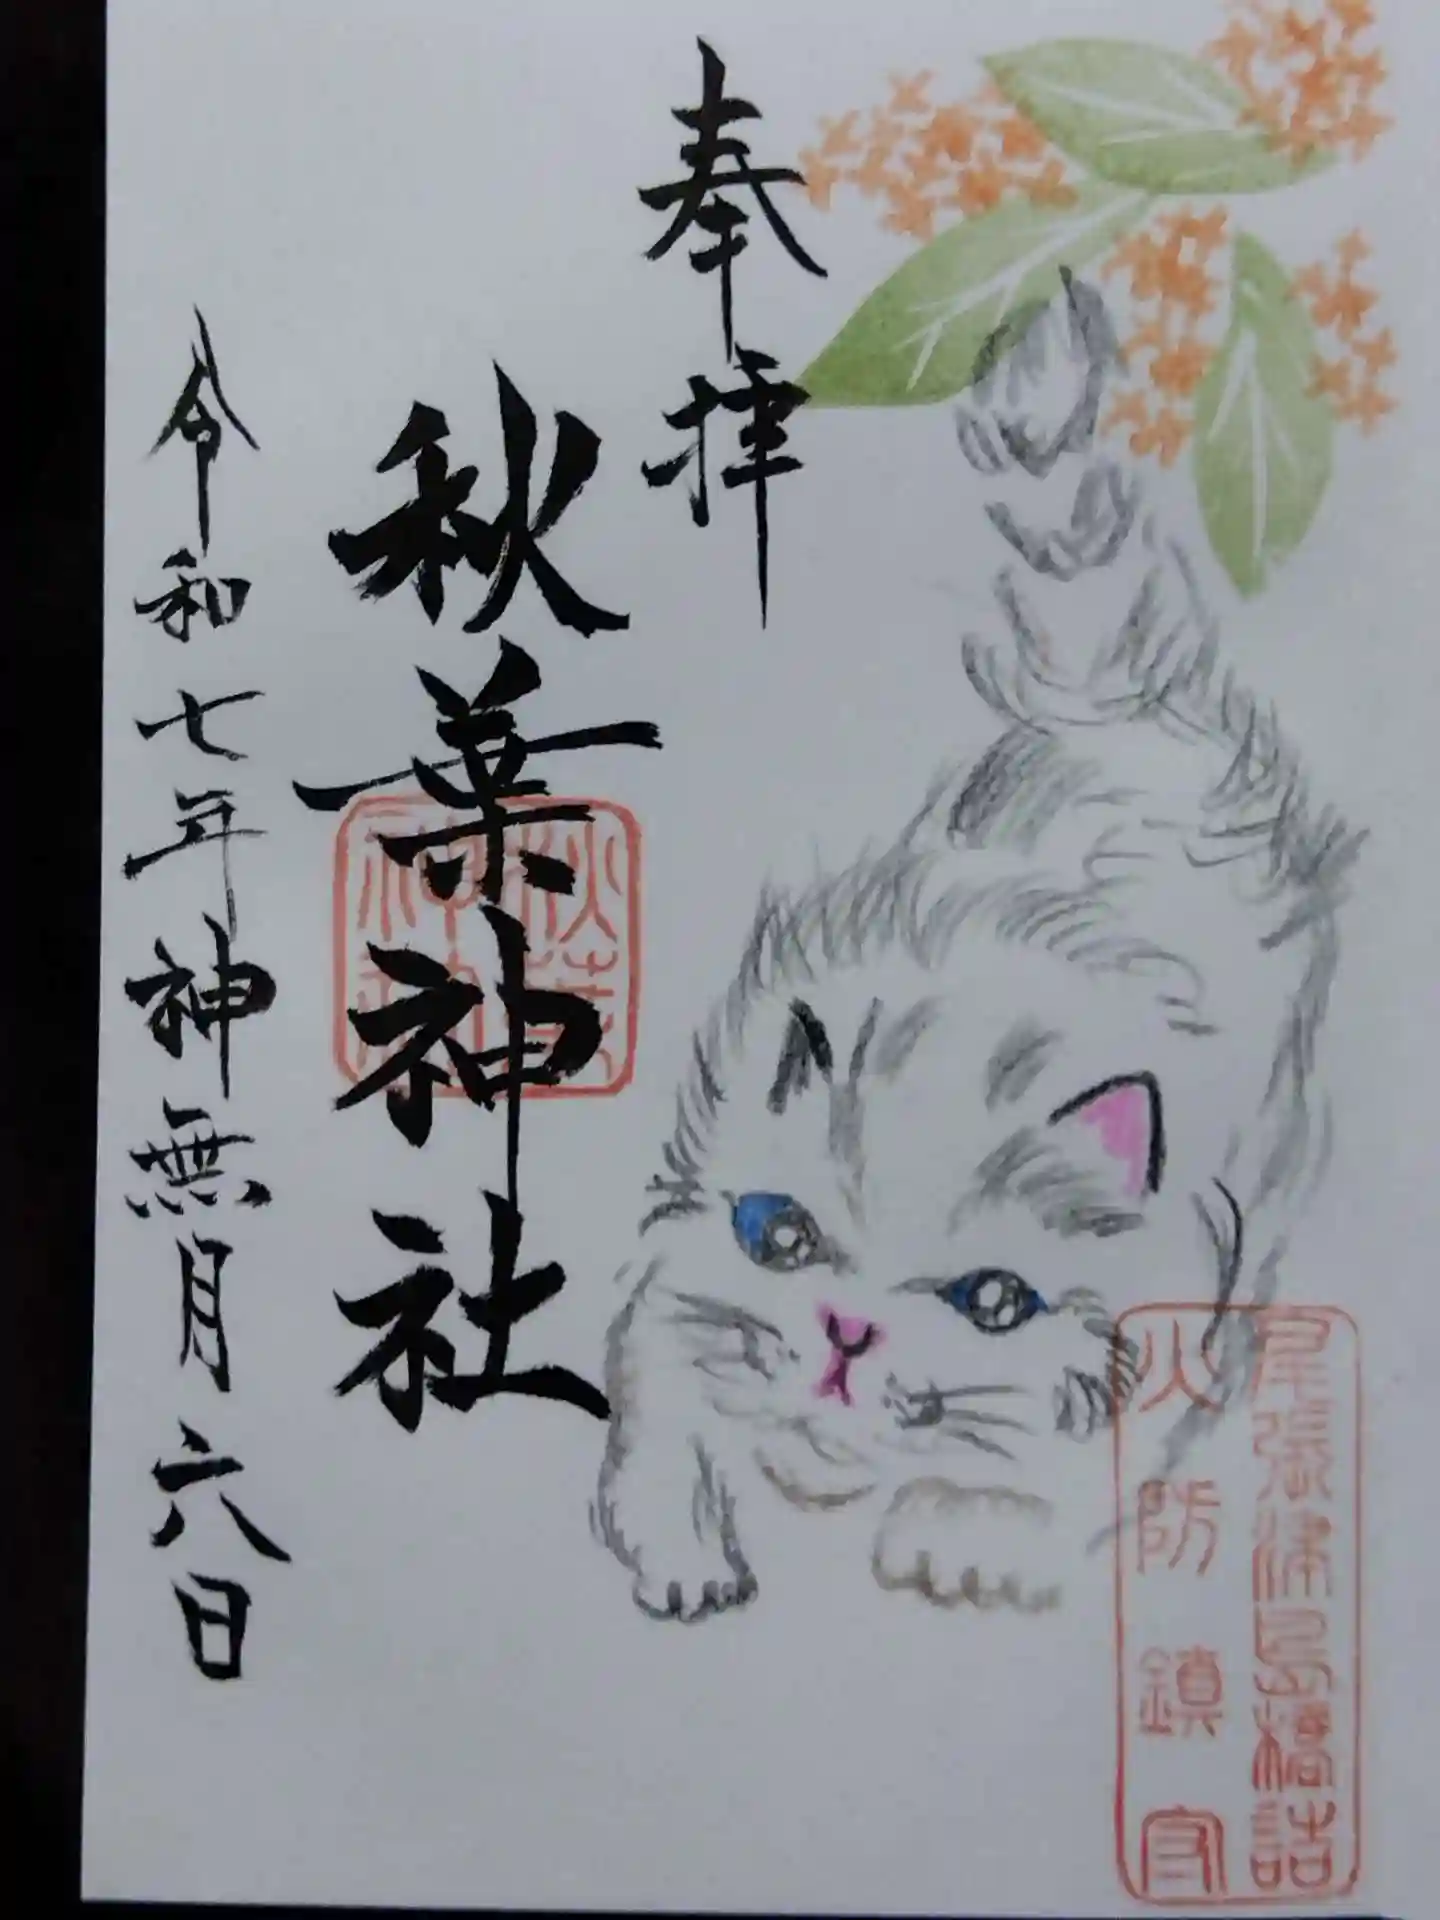 奉拝
秋葉神社
令和七年神無月六日
秋葉
神社
尾張津島橋詰
火防鎮守